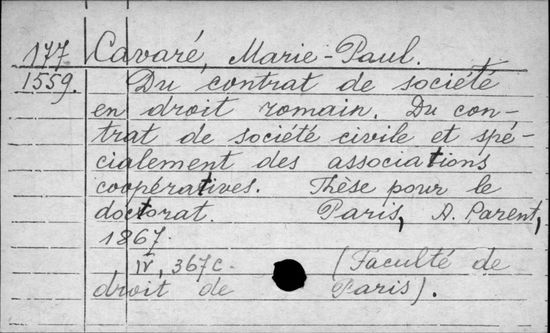 177 Cavaré, Marie-Paul.
1559. Du contrat de société
en droit romain. Du con-
trat de société civile et spé-
cialement des associations
coopératives. Thèse pour le
doctorat. Paris, A. Parent,
1867.
IV, 367c. (Faculté de
droit de Paris).